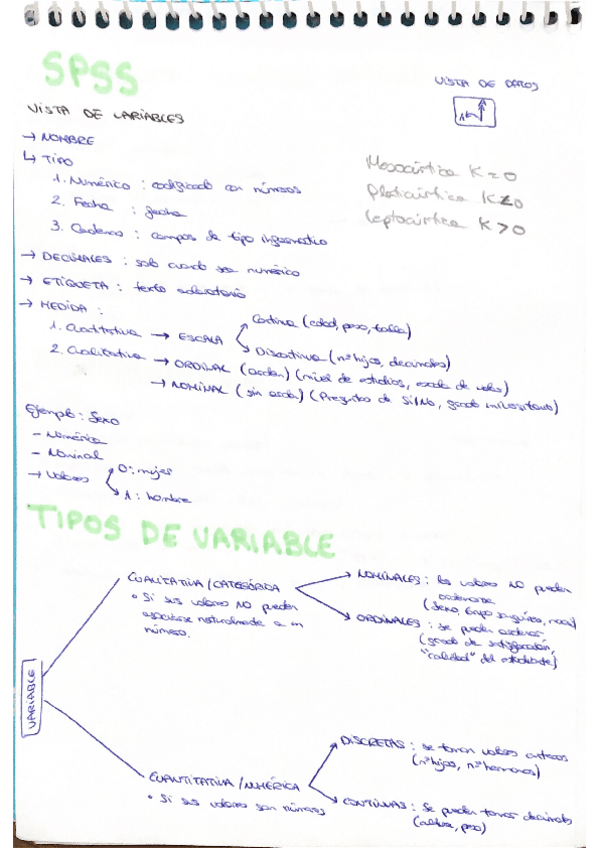 SPSS
VISTA DE DATOS
VISTA DE VARIABLES
A
→ NOMBRE
↳ TIPO
Mesocúrtica K=0
1. Numérico : codificado con números
Platicúrtica K<0
2. Fecha : fecha
Leptocúrtica K>0
3. Cadena : campos de tipo informático
→ DECIMALES : solo cuando sea numérico
→ ETIQUETA : texto
→ MEDIDA :
Continua (edad, peso, talla)
1. Cuantitativa → ESCALA
Discontinua (nº hijos,
2. Cualitativa → ORDINAL (orden) (nivel de estudios, escala de
→ NOMINAL (sin orden) (Preguntas de Sí/No, grado
Ejemplo : Sexo
- Numérica
- Nominal
→ Valores
0: mujer
1: hombre
TIPOS DE VARIABLE
CUALITATIVA/CATEGÓRICA
• Si sus valores NO pueden
asociarse naturalmente a un
número.
→ NOMINALES : los valores NO pueden
ordenarse
(sexo, grupo sanguíneo, raza)
→ ORDINALES : se pueden ordenar
(grado de satisfacción,
"calidad" del estudiante)
VARIABLE
DISCRETAS : se toman valores enteros
(nº hijos, nº hermanos)
CUANTITATIVA/NUMÉRICA
• Si sus valores son números
CONTINUAS : Se pueden tomar decimales
(altura, peso)